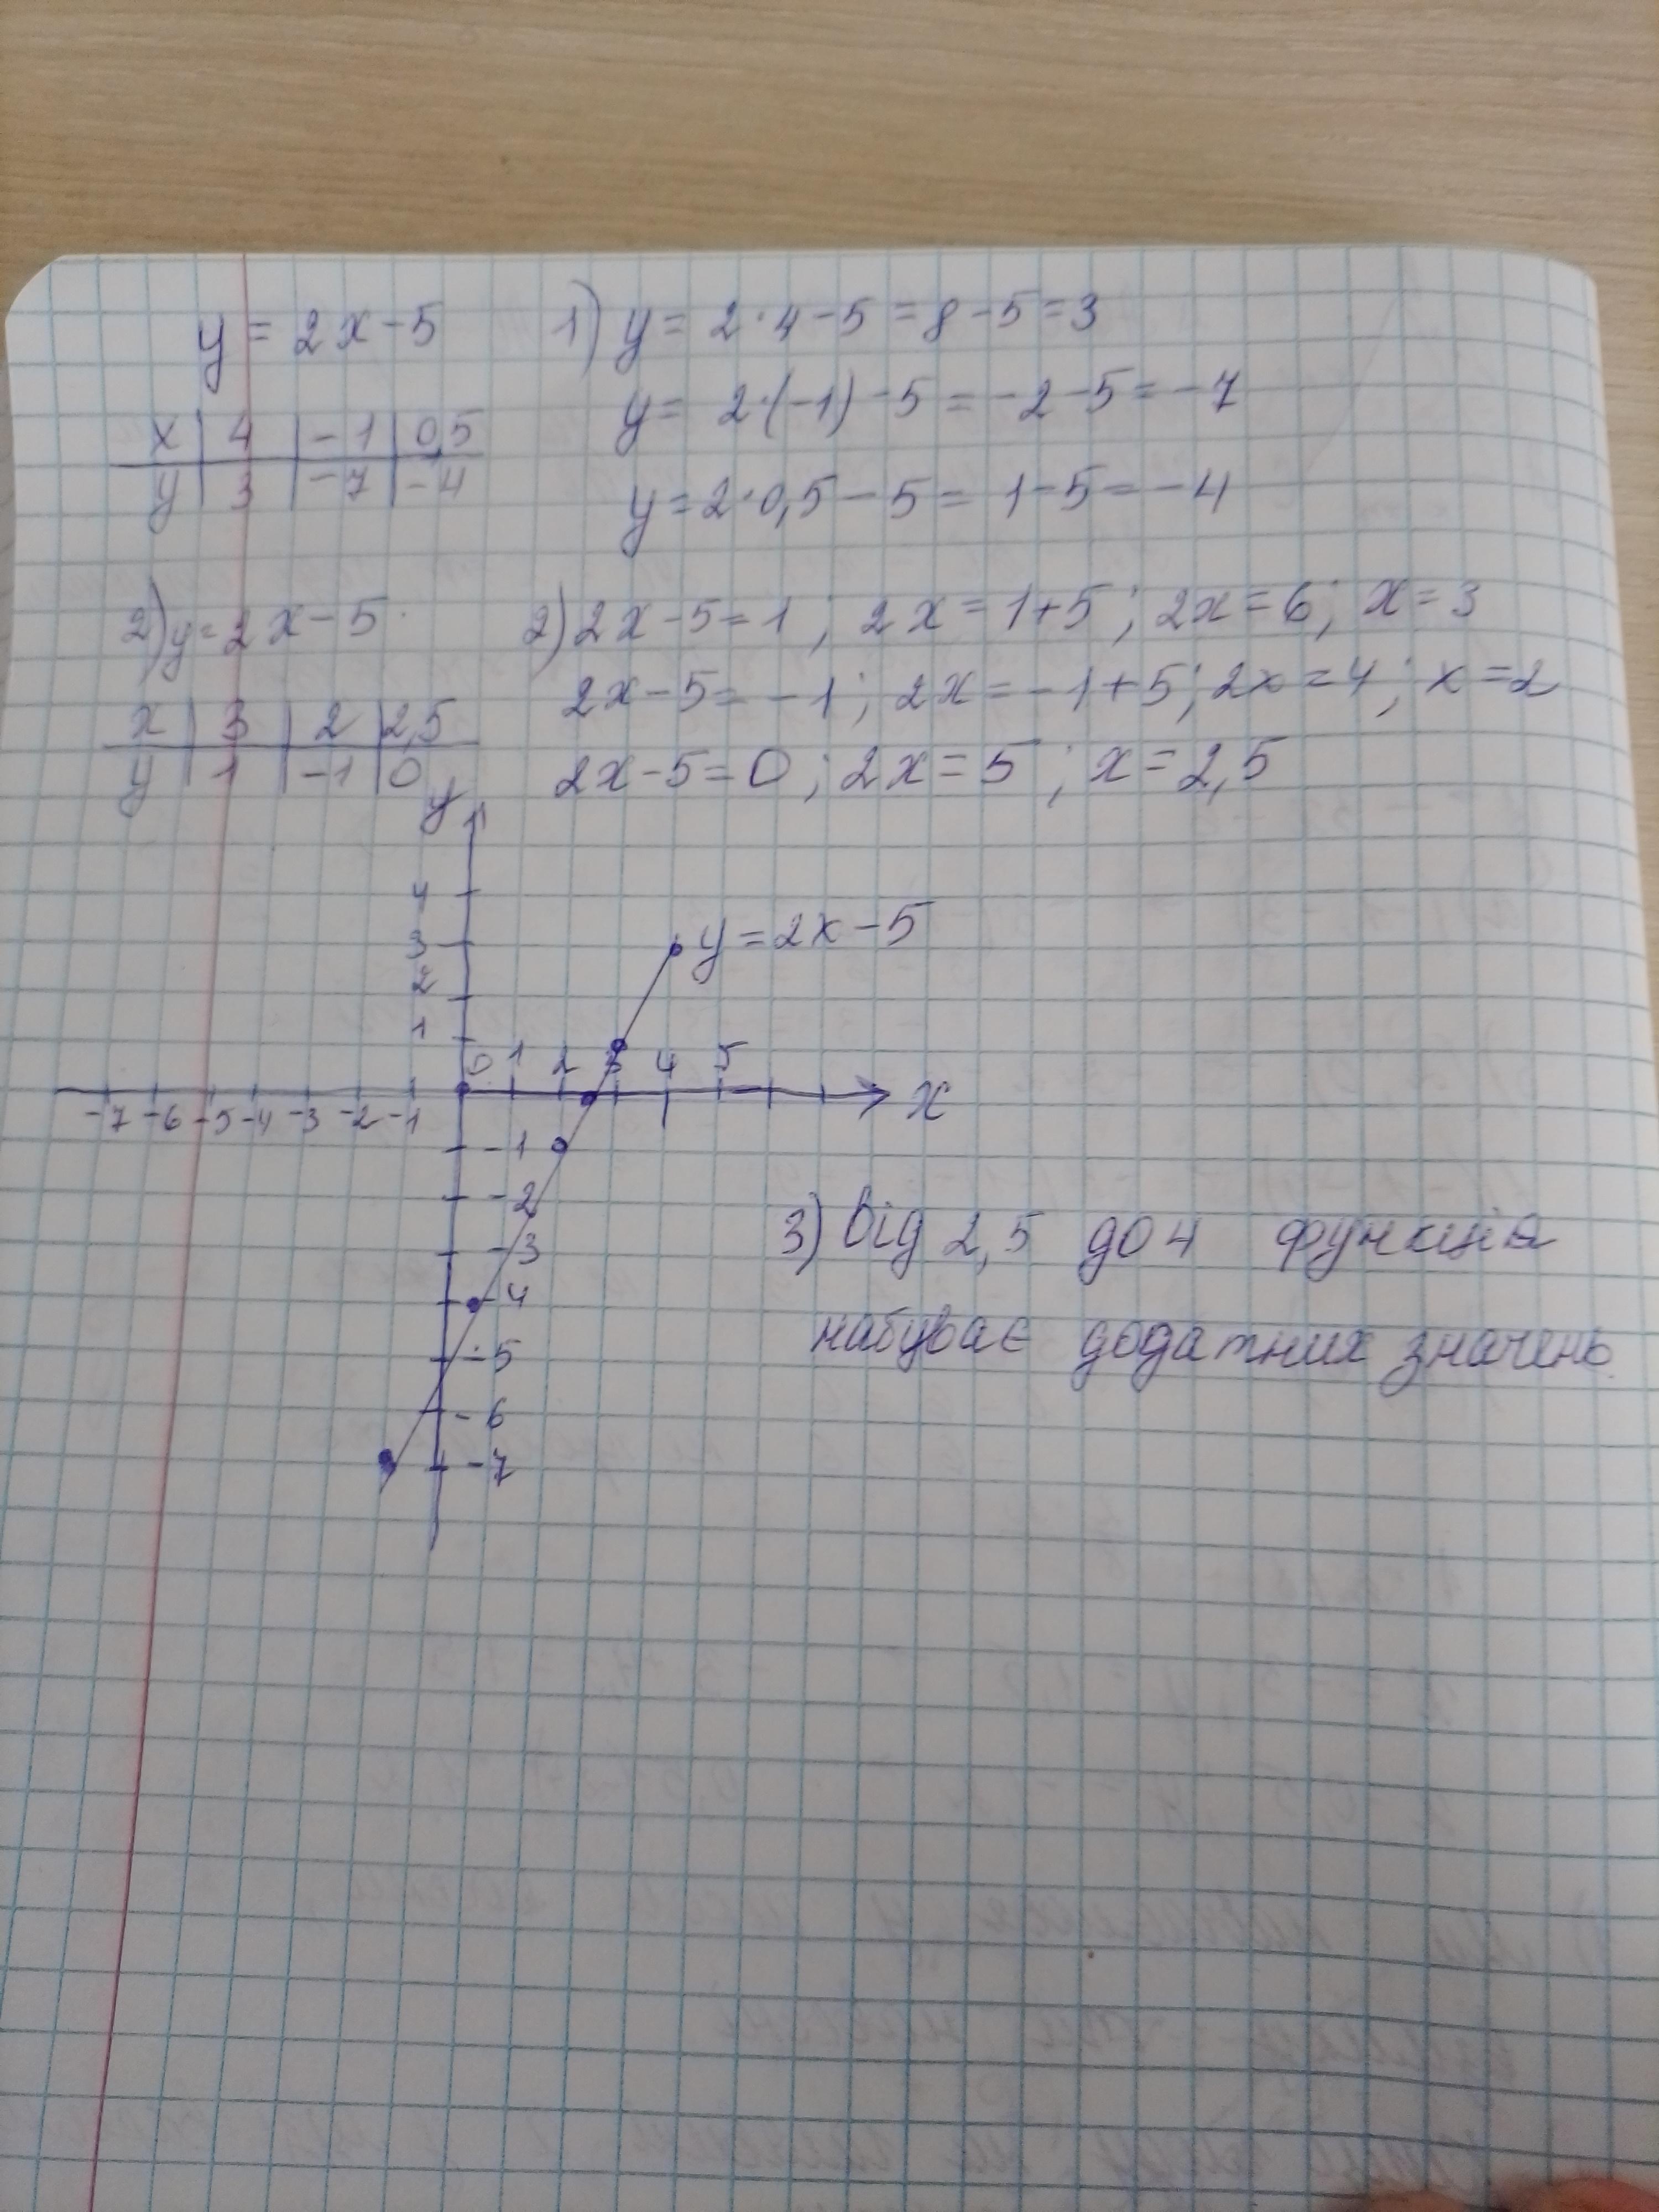 y = 2x - 5
x | 4 | -1 | 0,5
y | 3 | -7 | -4
1) y = 2·4 - 5 = 8 - 5 = 3
y = 2·(-1) - 5 = -2 - 5 = -7
y = 2·0,5 - 5 = 1 - 5 = -4
2) y = 2x - 5
x | 3 | 2 | 2,5
y | 1 | -1 | 0
2) 2x - 5 = 1; 2x = 1 + 5; 2x = 6; x = 3
2x - 5 = -1; 2x = -1 + 5; 2x = 4; x = 2
2x - 5 = 0; 2x = 5; x = 2,5
y
4
3
2
1
y = 2x - 5
0 1 2 3 4 5
-7 -6 -5 -4 -3 -2 -1
x
-1
-2
-3
-4
-5
-6
-7
3) Від 2,5 до 4 функція
набуває додатних значень